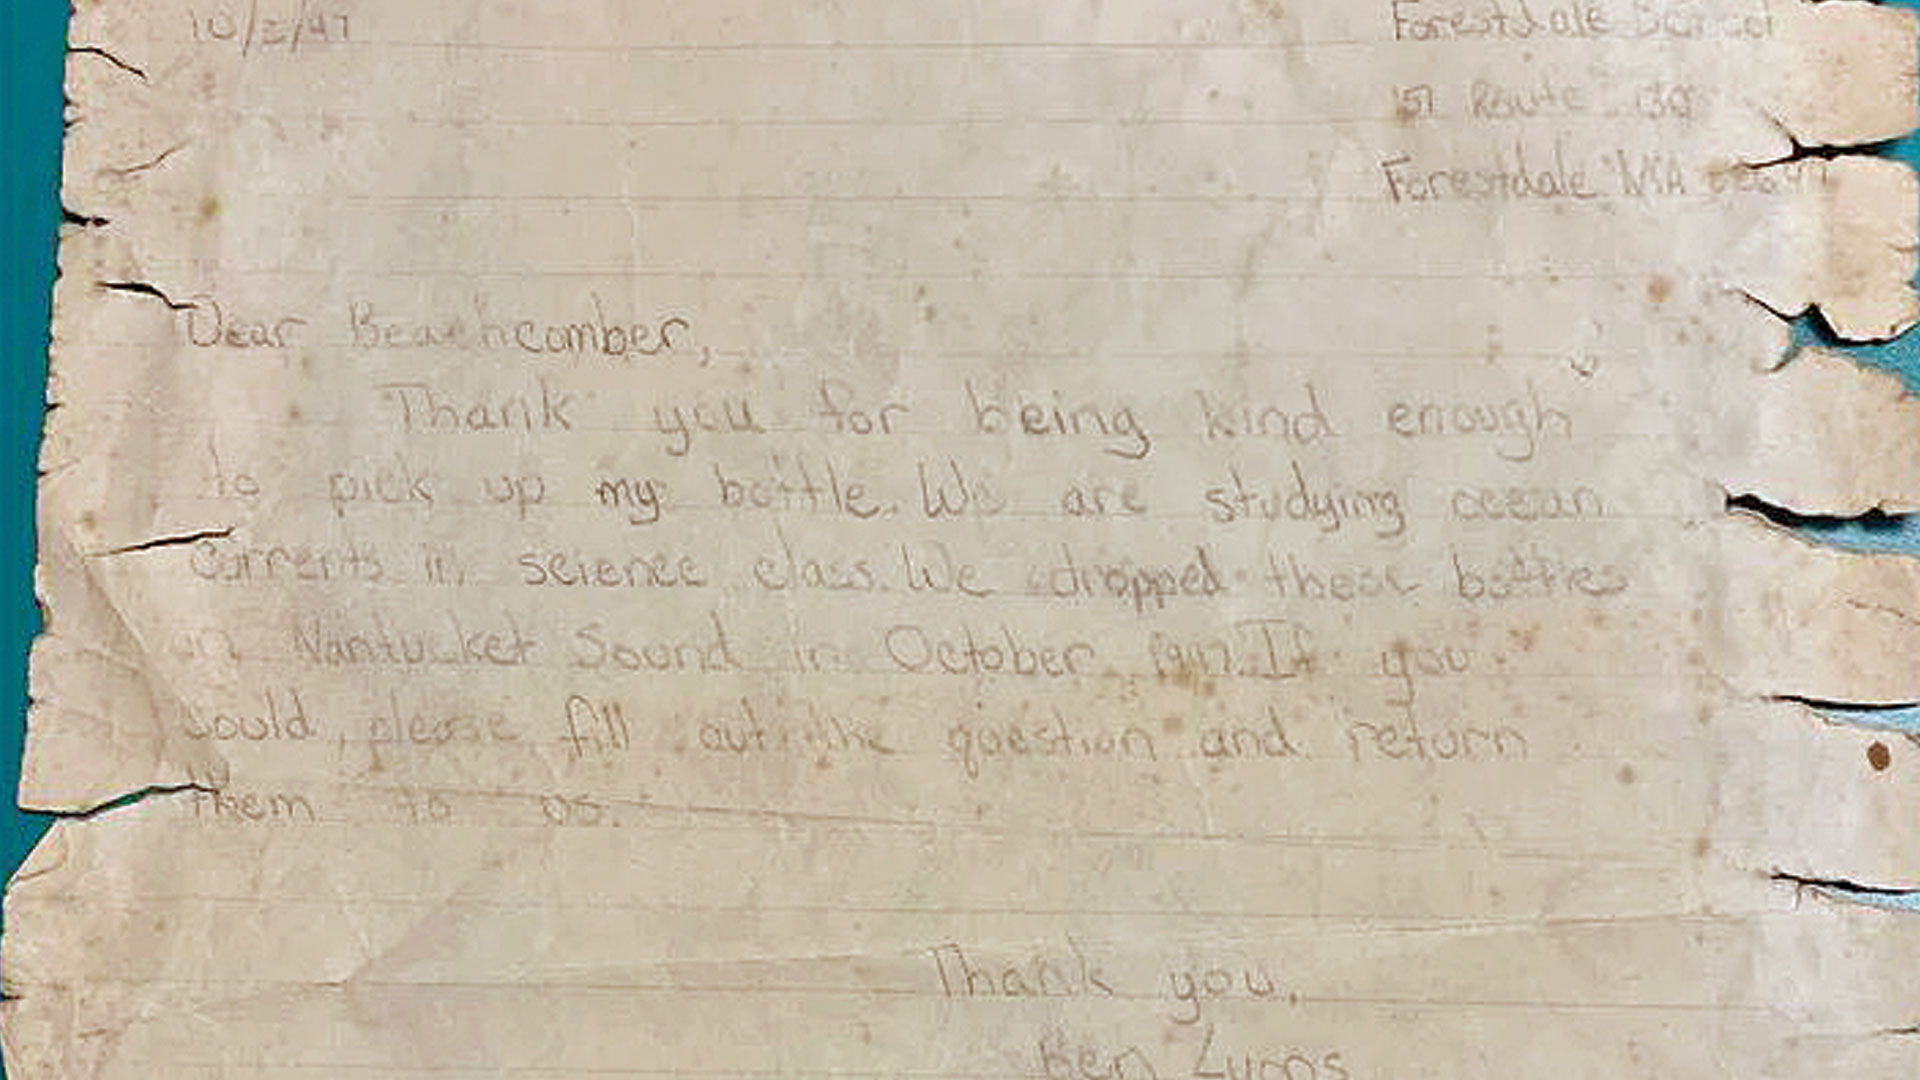 10/2/97
Forestdale School
151 Route 130
Forestdale MA 02644
Dear Beachcomber,
Thank you for being kind enough
to pick up my bottle. We are studying ocean
currents in science class. We dropped these bottles
in Nantucket Sound in October 1997. If you
would, please fill out the question and return
them to us.
Thank you,
Ben Lyons